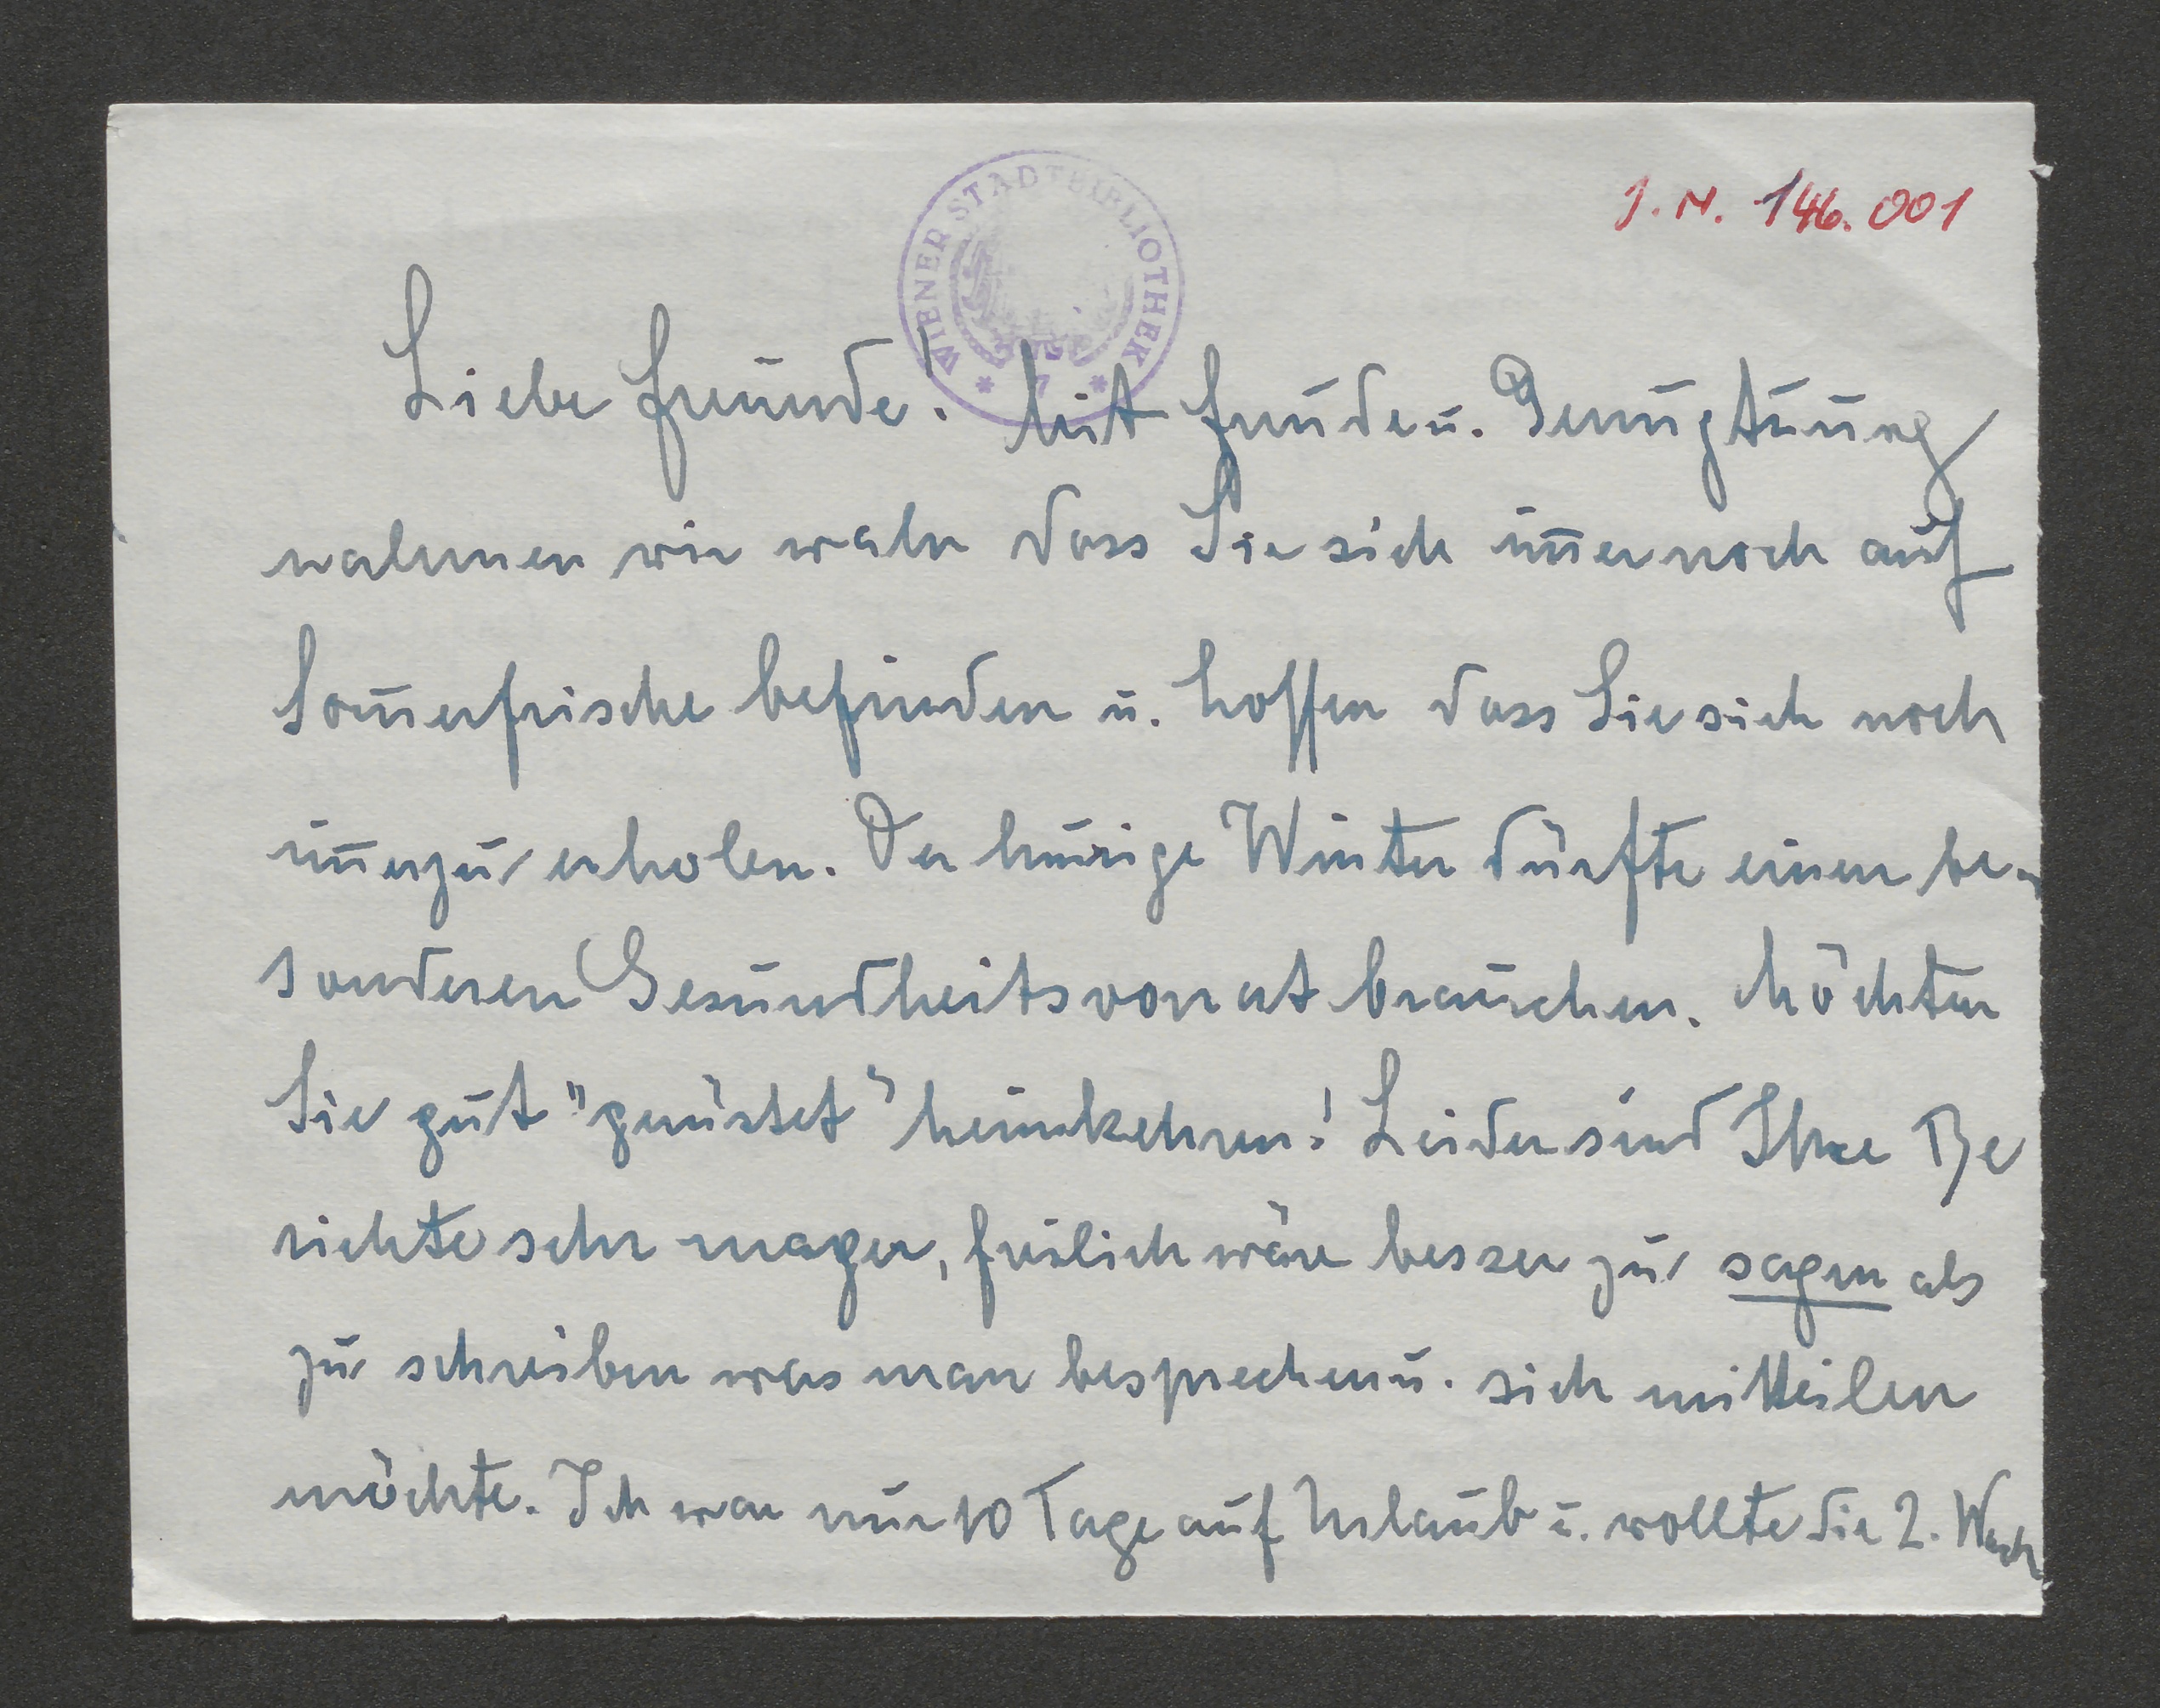 J. N. 146.001
WIENER STADTBIBLIOTHEK
Liebe Freunde! Mit Freude u. Genugtuung
nahmen wir wahr dass Sie sich im̅er noch auf
Som̅erfrische befinden u. hoffen dass Sie sich noch
im̅erzu erholen. Der heurige Winter dürfte einen be-
sonderen Gesundheitsvorrat brauchen. Möchten
Sie gut "gerüstet" heimkehren! Leider sind Ihre Be
richte sehr mager, freilich wäre besser zu sagen als
zu schreiben was man besprechen u. sich mitteilen
möchte. Ich war nur 10 Tage auf Urlaub u. wollte die 2. Woch